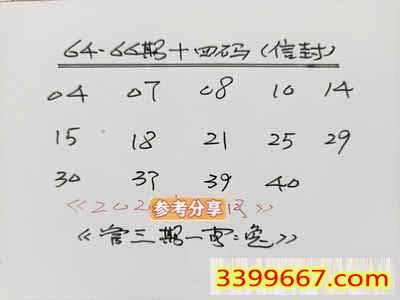 64-66期十四码(信封)
04 07 08 10 14
15 18 21 25 29
30 37 39 40
《202 参考分享 》
《管三期一更:兔》
3399667.com